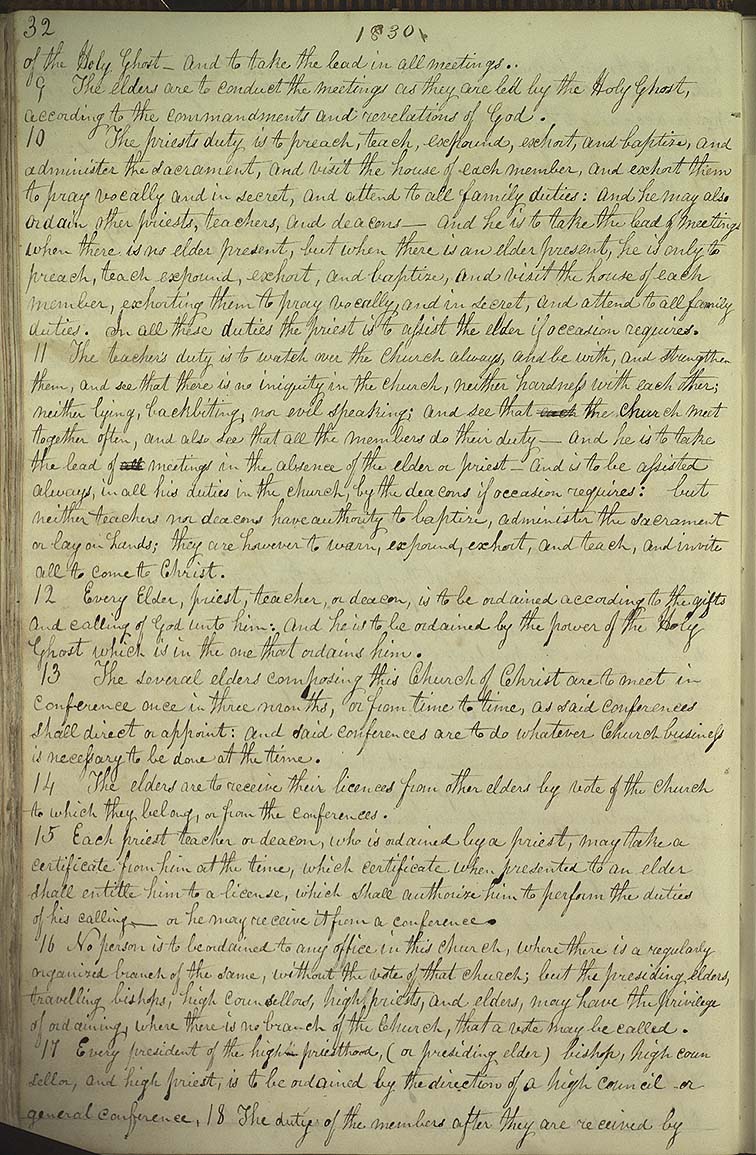 32
1830
of the Holy Ghost— and to take the lead in all meetings..
9 The elders are to conduct the meetings as they are led by the Holy Ghost,
according to the commandments and revelations of God.
10 The priests duty is to preach, teach, expound, exhort, and baptize, and
administer the sacrament, and visit the house of each member, and exhort them
to pray vocally and in secret, and attend to all family duties: and he may also
ordain other priests, teachers, and deacons— and he is to take the lead of meetings
when there is no elder present, but when there is an elder present, he is only to
preach, teach expound, exhort, and baptize, and visit the house of each
member, exhorting them to pray vocally, and in secret, and attend to all family
duties. In all these duties the priest is to assist the elder if occasion requires.
11 The teacher's duty is to watch over the Church always, and be with, and strengthen
them, and see that there is no iniquity in the church, neither hardness with each other;
neither lying, backbiting, nor evil speaking; and see that each the church meet
together often, and also see that all the members do their duty— and he is to take
the lead of all meetings in the absence of the elder or priest— and is to be assisted
always, in all his duties in the church, by the deacons if occasion requires: but
neither teachers nor deacons have authority to baptize, administer the sacrament
or lay on hands; they are however to warn, expound, exhort, and teach, and invite
all to come to Christ.
12 Every Elder, priest, teacher, or deacon, is to be ordained according to the gifts
and calling of God unto him: and he is to be ordained by the power of the Holy
Ghost which is in the one that ordains him.
13 The several elders composing this Church of Christ are to meet in
conference once in three months, or from time to time, as said conferences
shall direct or appoint: and said conferences are to do whatever Church business
is necessary to be done at the time.
14 The elders are to receive their licences from other elders by vote of the church
to which they belong, or from the conferences.
15 Each priest teacher or deacon, who is ordained by a priest, may take a
certificate from him at the time, which certificate when presented to an elder
shall entitle him to a license, which shall authorize him to perform the duties
of his calling— or he may receive it from a conference.
16 No person is to be ordained to any office in this church, where there is a regularly
organized branch of the same, without the vote of that church; but the presiding elders,
travelling bishops, high counsellors, high priests, and elders, may have the privilege
of ordaining, where there is no branch of the Church, that a vote may be called.
17 Every president of the high priesthood, (or presiding elder) bishop, high coun
sellor, and high priest, is to be ordained by the direction of a high council or
general conference, 18 The duty of the members after they are received by